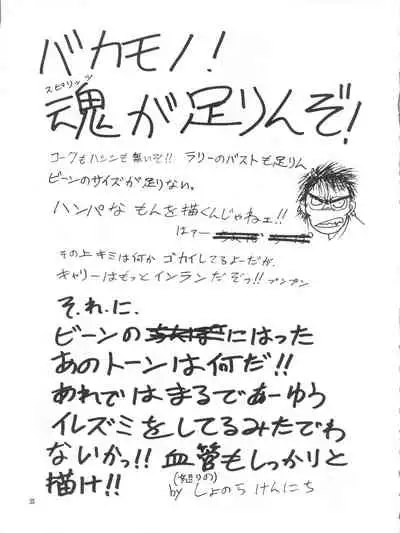 バカモノ!
スピリッツ
魂が足りんぞ!
コークもハシシも無いぞ!! ラリーのバストも足りん
ビーンのサイズが足りない。
ハンパなもんを描くんじゃねェ!!
はァー
その上キミは何か ゴカイしてるよーだが、
キャリーはもっとインランだぞっ!! プンプン
それに、
ビーンの にはった
あのトーンは何だ!!
あれではまるであーゆう
イレズミをしてるみたでわ
ないかっ!! 血管もしっかりと
描け!! (怒りの)
by しょのち けんにち